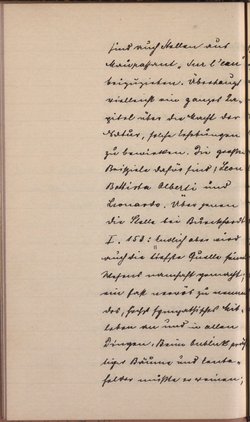 sind auch Stellen aus
Maupassant „Sur l'eau"
beizuziehen. Überhaupt
vielleicht ein ganzes Ka-
pitel über die Macht der
Natur, solche
zu bewirken. Die großen
Beispiele dafür sind: Leon
Battista Alberti und
Leonardo. Über jenen
die Stelle bei Burckhardt
I. 152: Endlich aber wird
auch die tiefste Quelle seines
Wesens namhaft gemacht:
ein fast nervös zu nennen-
des, höchst sympathisches Mit-
leben an und in allen
Dingen. Beim Anblick präch-
tiger Bäume und Ernte-
felder mußte er weinen,